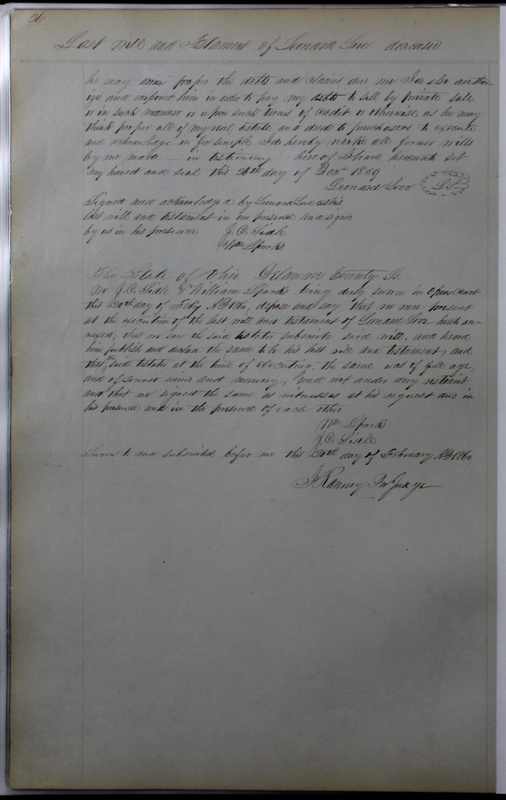 26
Last Will and Testament of Lenard Love deceased
he may deem proper the debts and claims due me I do also author-
ize and empower him in order to pay my debts to sell by private sale
or in such manner or upon such terms of credit or otherwise as he may
think proper all of my real estate and deed to purchasers to execute
and acknowledge in fee simple I do hereby revoke all former wills
by me made — in testimony hereof I have hereunto set
my hand and seal this 24th day of Dec 1859
Leonard Love L.S.
Signed and acknowledged by Lenard Love as his
last will and testament in our presence and signed
by us in his presence J. C. Sidle
Wm Spark
The State of Ohio Delaware County Ss.
We J. C. Sidle & William Spark being duly sworn in open court
this 20th day of Feby AD 1860, depose and say that we were present
at the execution of the last will and testament of Lenard Love hereto an-
nexed, that we saw the said testator subscribe said will, and heard
him publish and declare the same to be his last will and testament, and
that said testator at the time of executing the same was of full age,
and of sound mind and memory, and not under any restraint
and that we signed the same as witnesses at his request and in
his presence and in the presence of each other
Wm Spark
J. C. Sidle
Sworn to and subscribed before me this 20th day of February AD 1860
Ranney Pro Judge